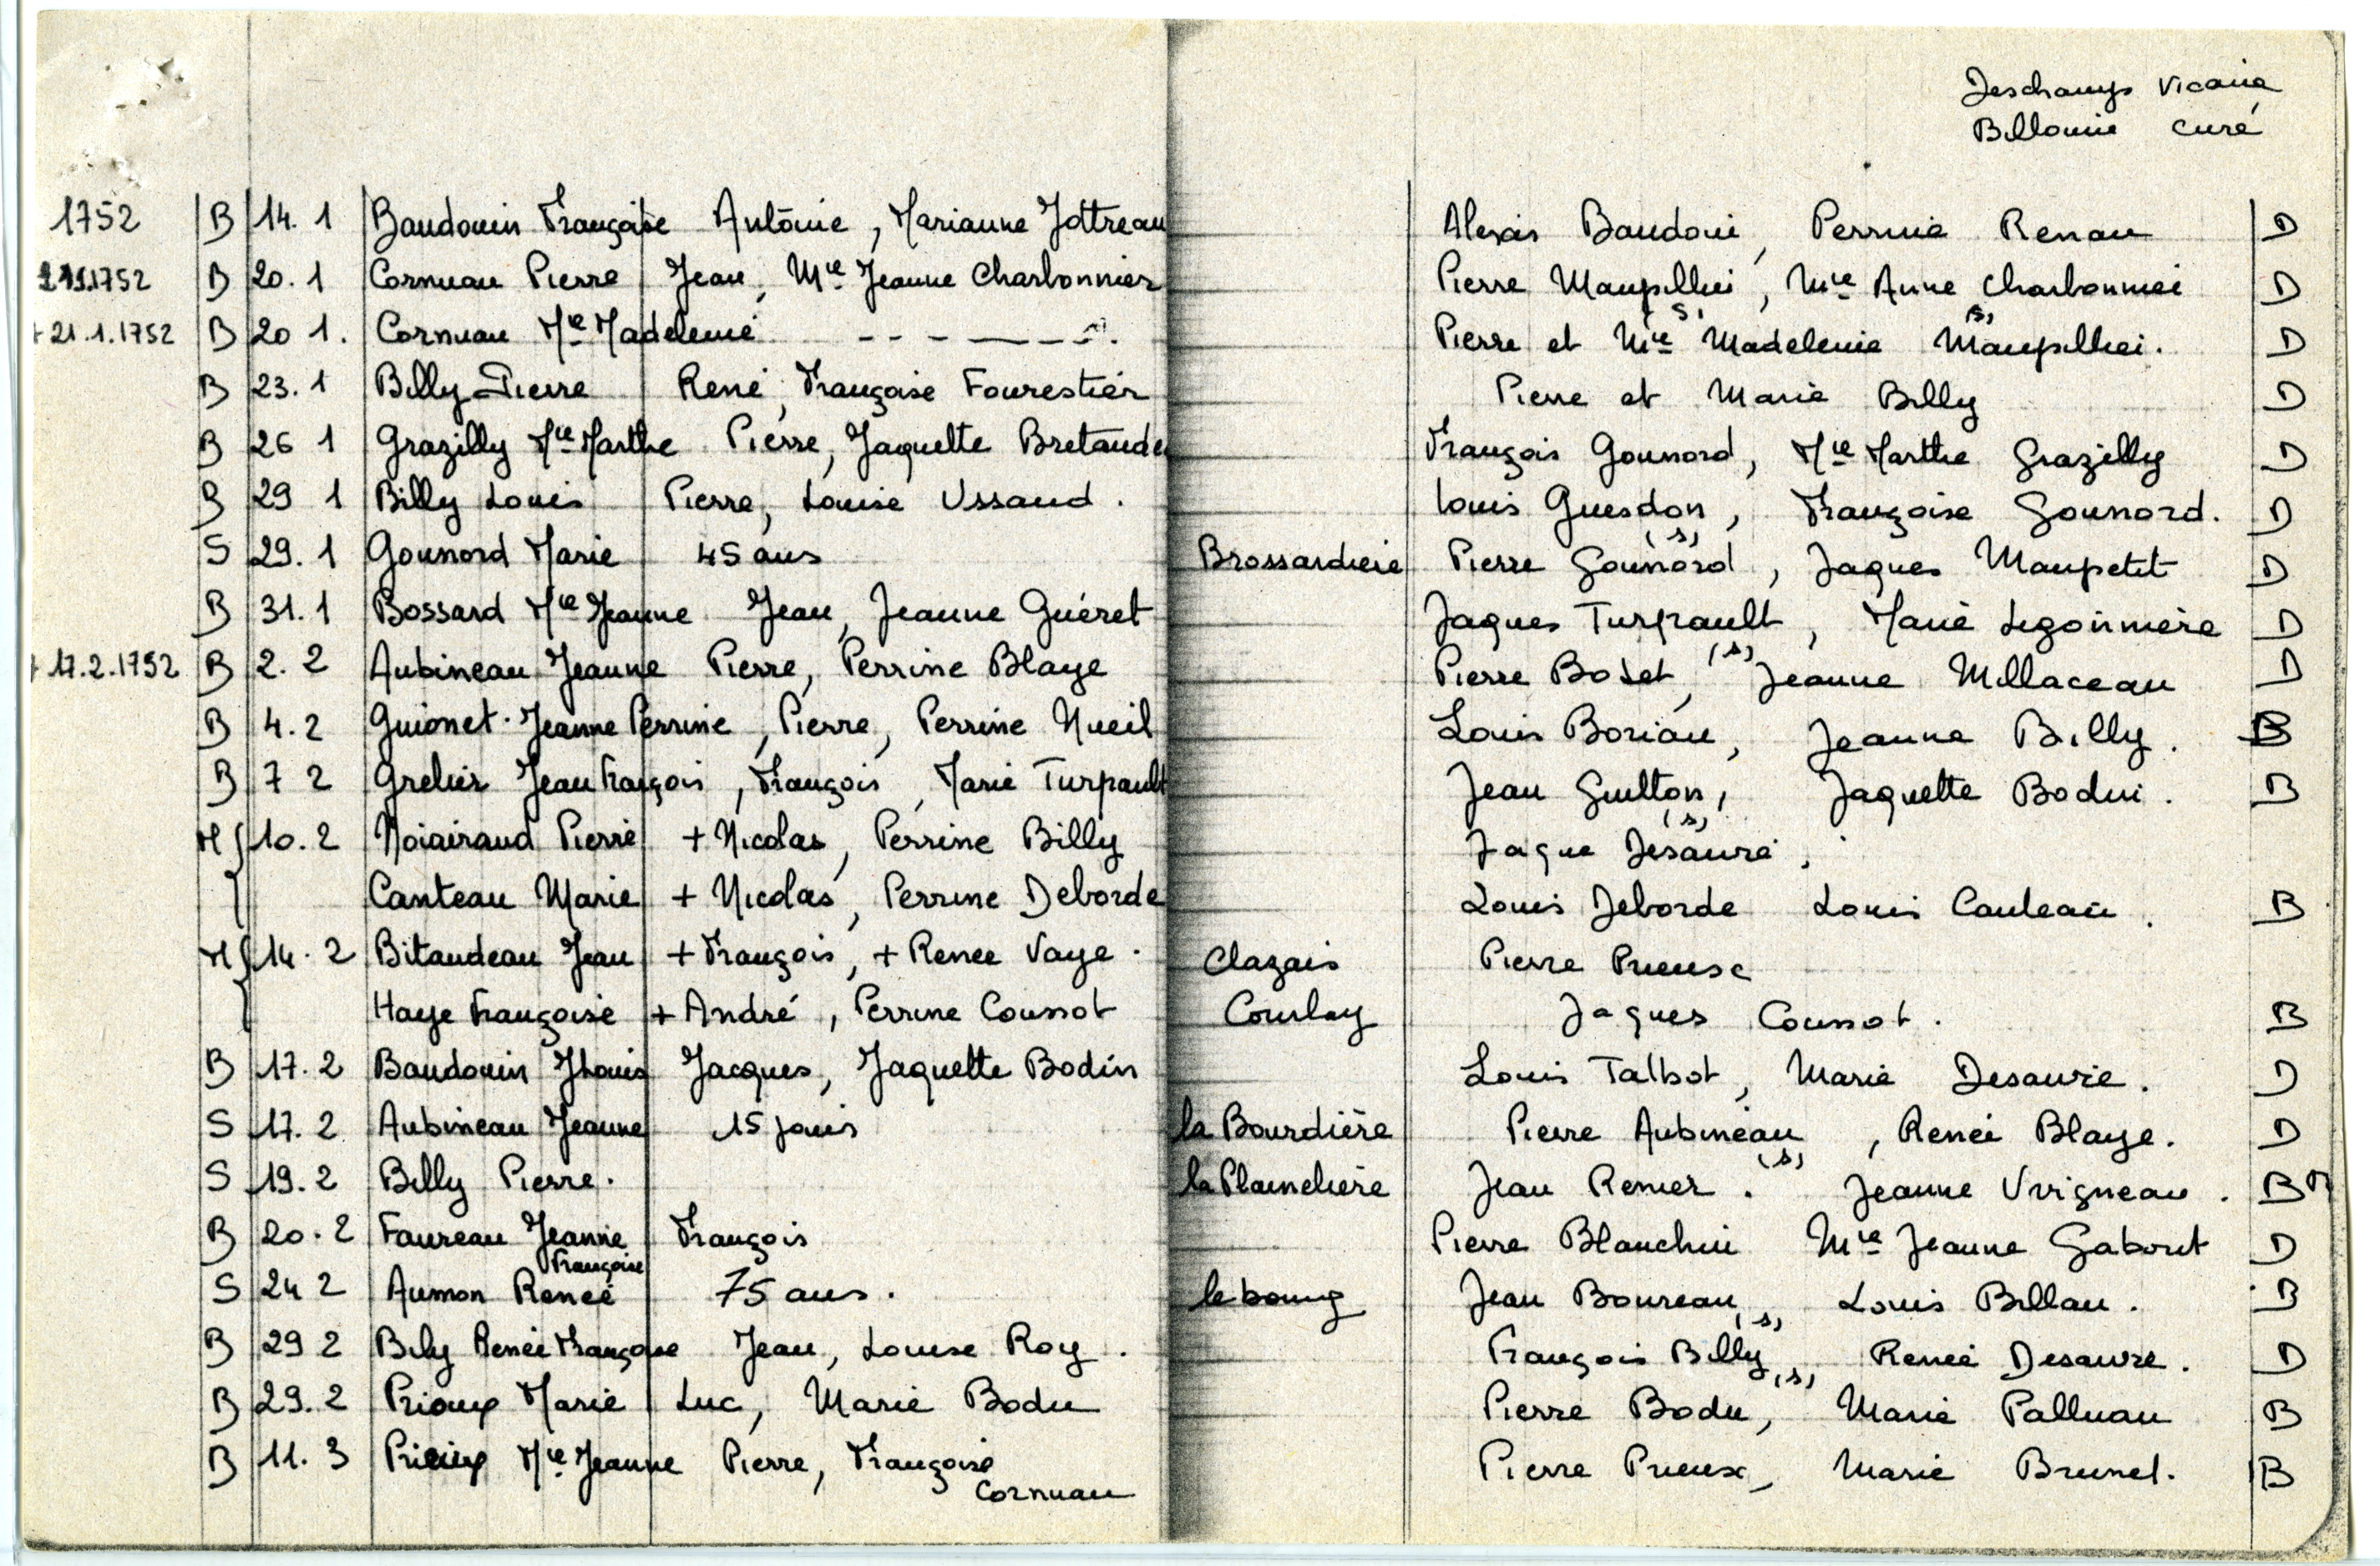 Deschamps Vicaire
Billonin curé
1752 B 14.1 Baudouin Françoise Antoine, Marianne Jottreau Alexis Baudoin, Perrine Renau D
1752 B 20.1 Cornuau Pierre Jean, Mie Jeanne Charbonnier Pierre Maupillei, Mie Anne Charbonnier D
+ 21.1.1752 B 20 1. Cornuau Mie Madeleine - - - - - - Pierre et Mie (s) Madeleine Maupillei (s). D
B 23.1 Billy Pierre René, Françoise Fourestier Pierre et Marie Billy D
B 26 1 Grazilly Mie Marthe Pierre, Jaquette Bretaude François Gounord, Mie Marthe Grazilly D
B 29 1 Billy Louis Pierre, Louise Ussaud. Louis Guesdon, Françoise Gounord. D
S 29.1 Gounord Marie 45 ans Brossardiere Pierre Gounord (s), Jaques Maupetit D
B 31.1 Bossard Mie Jeanne Jean, Jeanne Guéret Jaques Turpault, Marie Legonnière D
+ 17.2.1752 B 2.2 Aubineau Jeanne Pierre, Perrine Blaye Pierre Bodet, (s) Jeanne Millaceau D
B 4.2 Guionet Jeanne Perrine, Pierre, Perrine Nueil Louis Boriau, Jeanne Billy. B
B 7 2 Grelier Jean François, François, Marie Turpault Jean Guitton, Jaquette Bodin. B
M { 10.2 Noirairaud Pierre + Nicolas, Perrine Billy Jaque Desauré (s),
Canteau Marie + Nicolas, Perrine Deborde Louis Deborde Louis Canteau. B
M { 14.2 Bitaudeau Jean + François, + Renee Vaye. Clazais Pierre Prieux
Haye Françoise + André, Perrine Coussot Courlay Jaques Coussot. B
B 17.2 Baudouin J Louis Jacques, Jaquette Bodin Louis Talbot, Marie Desaurie. D
S 17.2 Aubineau Jeanne 15 jours la Bourdière Pierre Aubineau, Renée Blaye. D
S 19.2 Billy Pierre. la Plainelière Jean Renier (s). Jeanne Vvrigneau. B
B 20.2 Faureau Jeanne François Pierre Blanchin Mie Jeanne Gaboret D
Françoise
S 24 2 Aumon Renée 75 ans. le bourg Jean Boureau, Louis Billau. B
B 29 2 Bily Renée Françoise Jean, Louise Roy. François Billy (s), Renée Desaure. D
B 29.2 Prioux Marie Luc, Marie Bodu Pierre Bodu (s), Marie Palluau B
B 11.3 Prieux Mie Jeanne Pierre, Françoise Pierre Prieux, Marie Brunet. B
Cornuau